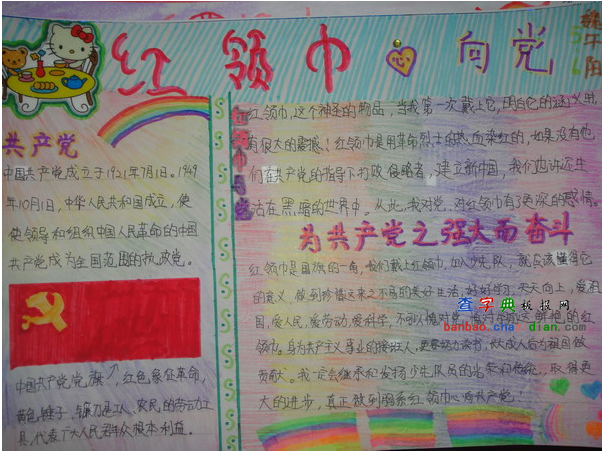 红领巾心向党
共产党
中国共产党成立于1921年7月1日。1949
年10月1日,中华人民共和国成立,使
使领导和组织中国人民革命的中国
共产党成为全国范围的执政党。
中国共产党党旗,红色象征革命,
黄色锤子、镰刀是工人、农民的劳动工
具,代表广大人民群众根本利益。
红领巾与党
红领巾,这个神圣的物品,当我第一次戴上它,明白它的涵义时,
有很大的震撼!红领巾是用革命烈士的热血染红的,如果没有他
们在共产党的指导下打败侵略者,建立新中国,我们也许还生
活在黑暗的世界中。从此,我对党、对红领巾有了更深的感情。
为共产党之强大而奋斗
红领巾是国旗的一角,我们戴上红领巾,加入少先队,就应该懂得它
的意义,做到珍惜这来之不易的美好生活,好好学习,天天向上,爱祖
国,爱人民,爱劳动,爱科学,不可以愧对党,愧对鲜艳的红
领巾。身为共产主义事业的接班人,更要努力读书,长大成人后为祖国做
贡献。我一定会继承和发扬少先队员的光荣和传统,取得更
大的进步,真正做到胸系红领巾心向共产党!
查字典板报网
banbao.chazidian.com